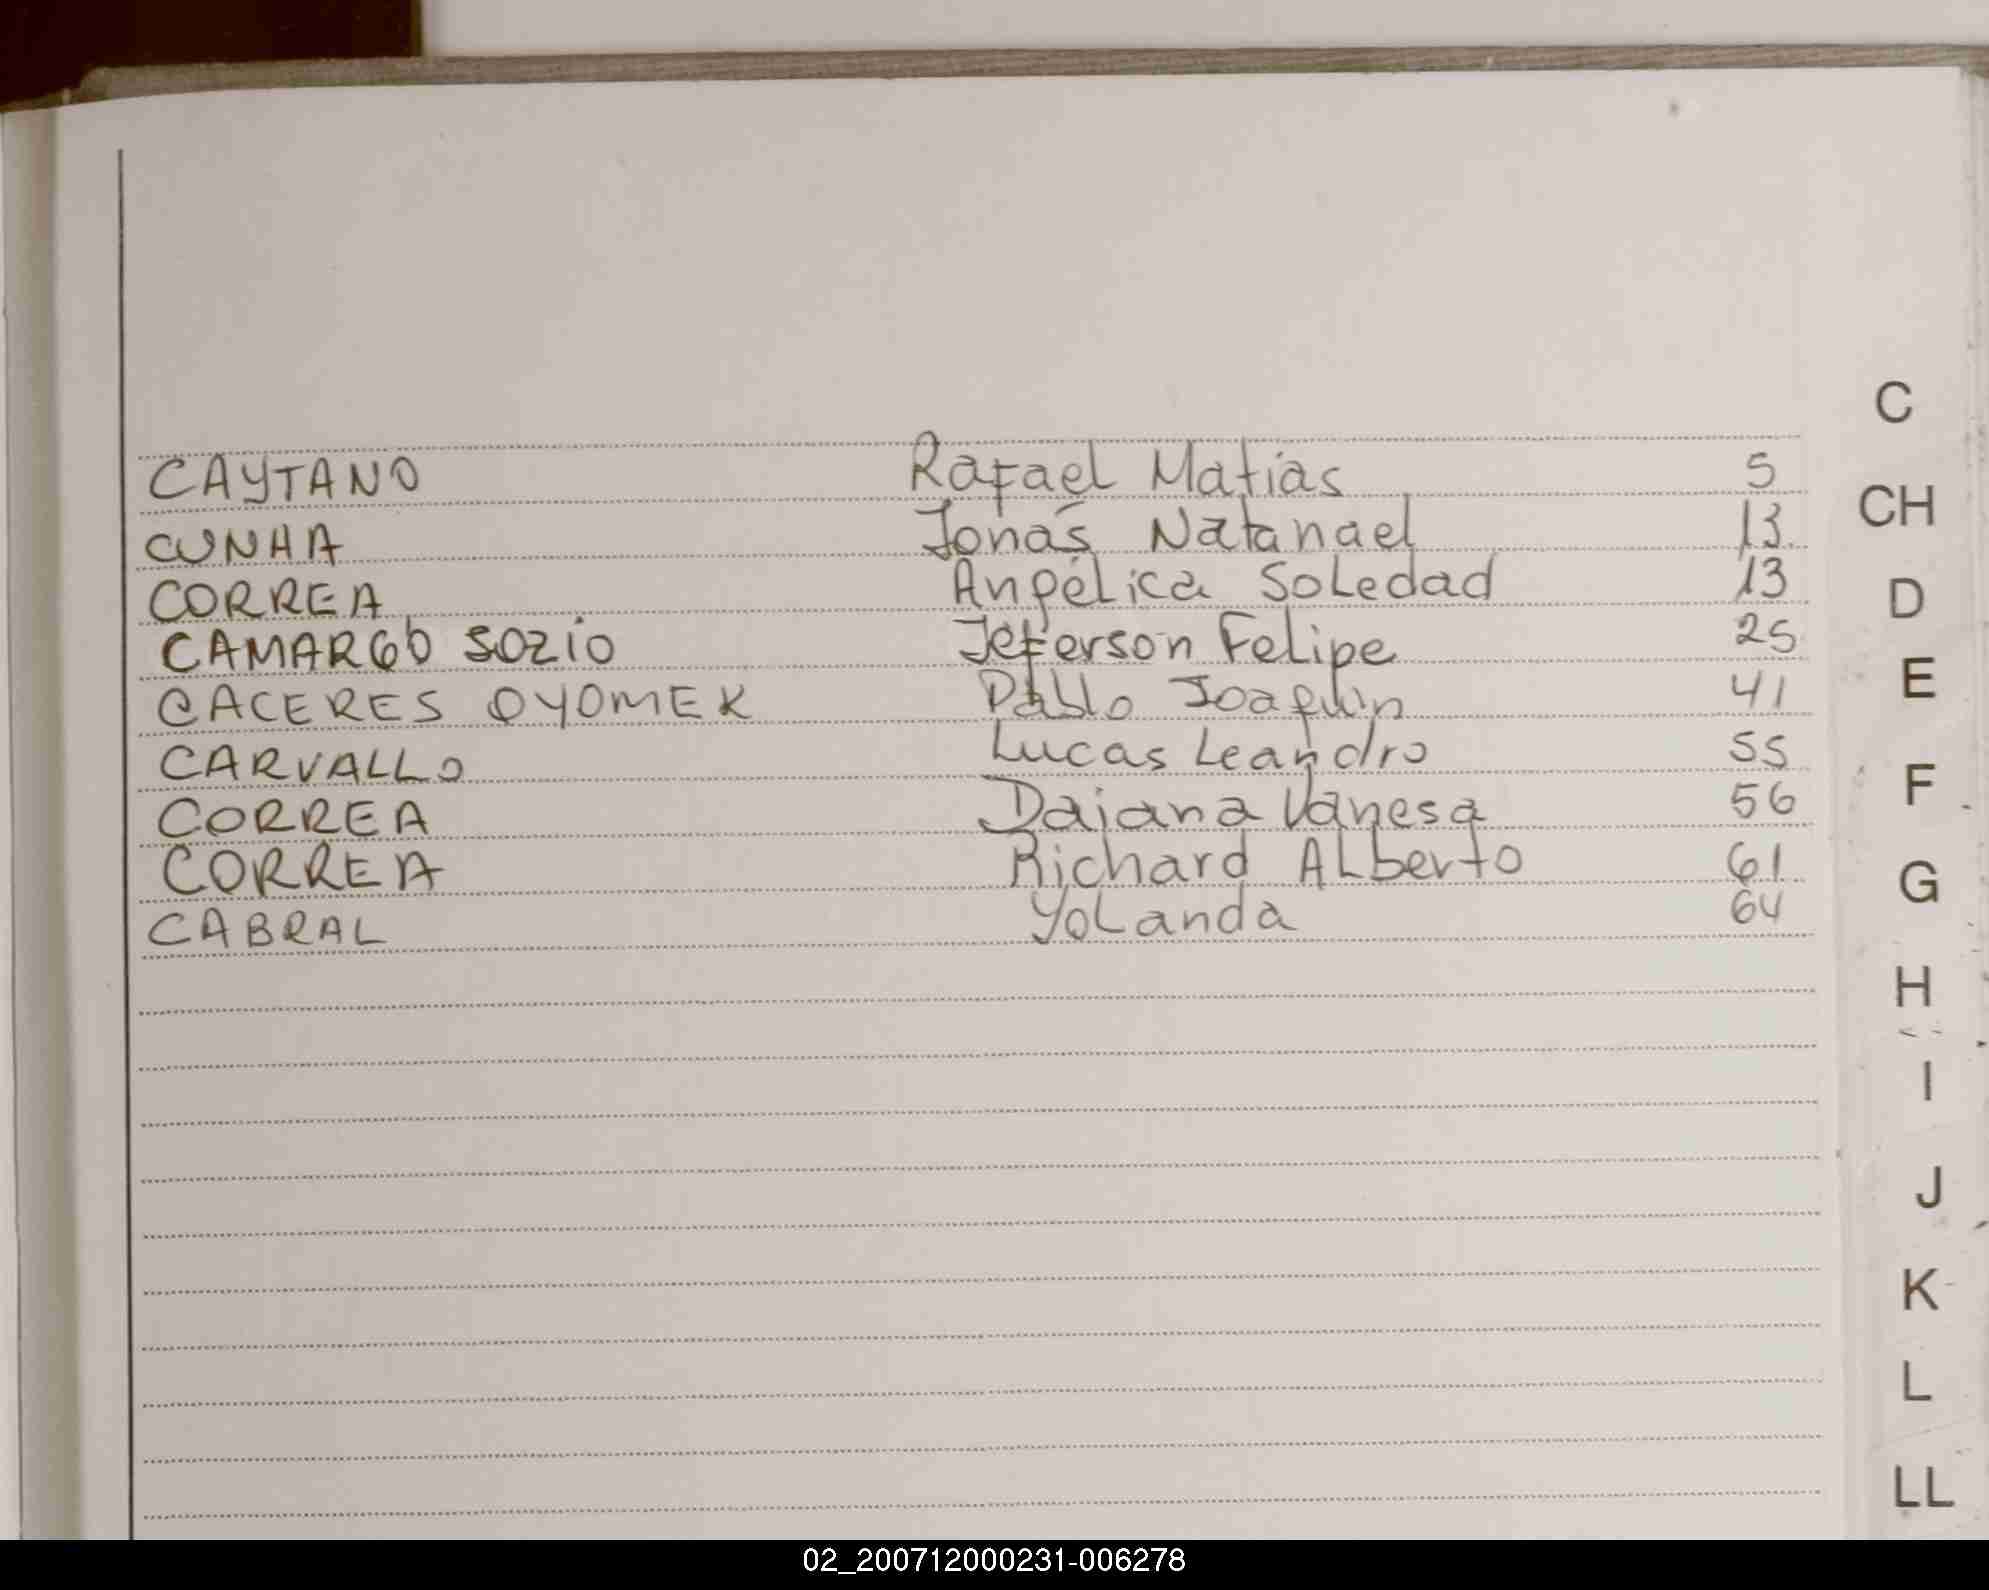 CAYTANO Rafael Matías 5
CUNHA Jonás Natanael 13
CORREA Angélica Soledad 13
CAMARGO SOZIO Jeferson Felipe 25
CACERES OYOMEK Pablo Joaquín 41
CARVALLO Lucas Leandro 55
CORREA Daiana Vanesa 56
CORREA Richard Alberto 61
CABRAL Yolanda 64
C
CH
D
E
F
G
H
I
J
K
L
LL
02_200712000231-006278